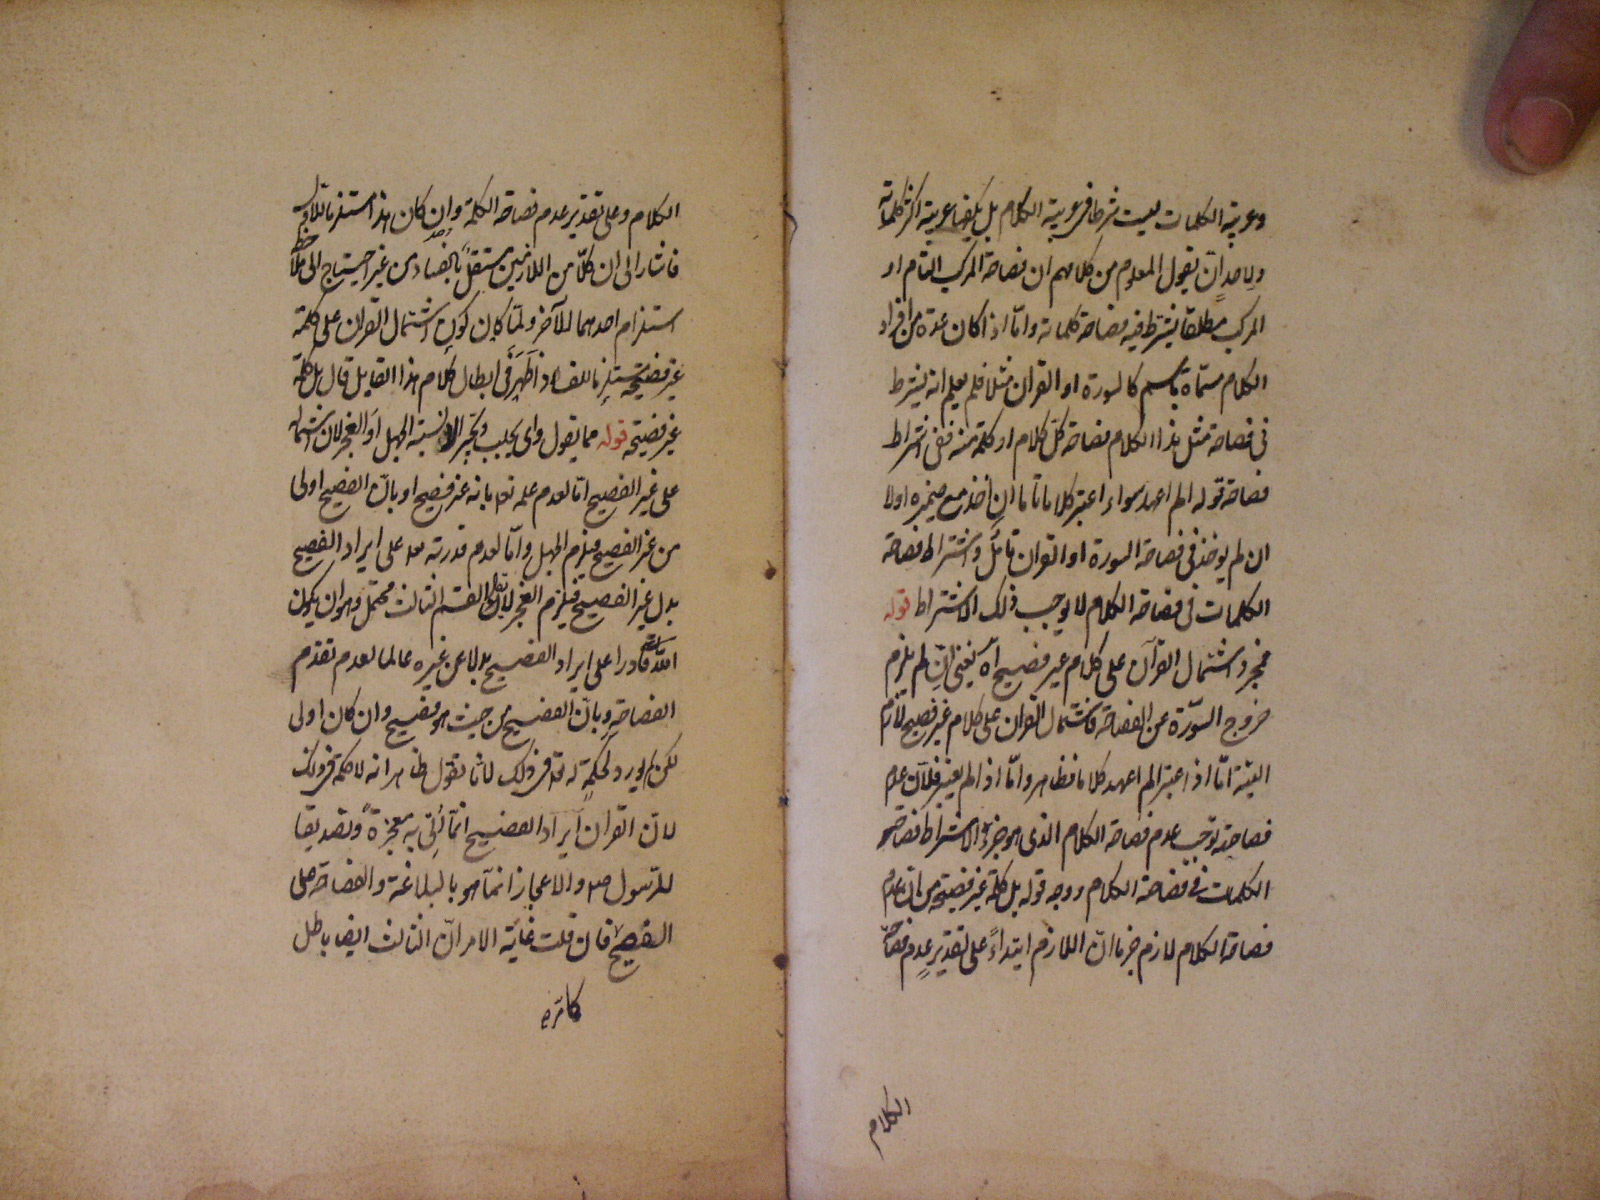 وعربية الكلمات ليست شرطا في عربية الكلام بل يكفيها عربية اكثر كلماته
ولاحد ان يقول المعلوم من كلامهم ان فصاحة المركب التام او
المركب مطلقا يشترط فيه فصاحة كلماته واما اذا كان عدة من افراد
الكلام مسماة باسم كالسورة او القران مثلا فلم يعلم انه يشترط
في فصاحة مثل هذا الكلام فصاحة كل كلام او كلمة منه ففي اشتراط
فصاحة قوله الم اعهد سواء اعتبر كلاما تاما ان اخذ مع ضميره اولا
ان لم يوخذ في فصاحة السورة او القران تامل واشتراط فصاحة
الكلمات في فصاحة الكلام لا يوجب ذلك الاشتراط قوله
فمجرد اشتمال القرآن على كلام غير فصيح اه يعني ان لم يلزم
خروج السورة عن الفصاحة فاشتمال القران على كلام غير فصيح لازم
البتة اما اذا اعتبر الم اعهد كلاما فظاهر واما اذا لم يعتبر فلان عدم
فصاحته توجب عدم فصاحة الكلام الذي هو جزؤه لاشتراط فصاحة
الكلمات في فصاحة الكلام ووجه قوله بل كلمة غير فصيحة من ان عدم
فصاحة الكلام لازم جزما ان اللازم ابتداءً على تقدير عدم فصاحة
الكلام
الكلام وعلى تقدير عدم فصاحة الكلمة وان كان هذا مستلزما للاول
فاشار الى ان كلا من اللازمين مستقل بالفساد من غير احتياج الى ملاحظة
استلزام احدهما للآخر ولما كان كون اشتمال القران على كلمة
غير فصيحة مستلزما للفساد اظهر في ابطال كلام هذا القايل قال بل كلمة
غير فصيحة قوله مما يقول واي يجلب ويجر الى نسبة الجهل او العجز لان اشتماله
على غير الفصيح اما لعدم علمه تعا بانه غير فصيح او بان الفصيح اولى
من غير الفصيح فيلزم الجهل واما لعدم قدرته تعا على ايراد الفصيح
بدل غير الفصيح فيلزم العجز القسم الثالث محتمل وهو ان يكون
الله قادرا على ايراد الفصيح بدلا عن غيره عالما لعدم تقدم
الفصاحة وبان الفصيح من حيث هو فصيح وان كان اولى
لكن لم يورد لحكمة له في ذلك لانا نقول ظاهر انه لا حكمة في ذلك
لان القران ايراد الفصيح انما اتي به معجزة وتصديقا
للرسول صلعم والاعجاز انما هو بالبلاغة والفصاحة على
الفصيح فان قلت غاية الامر ان الثالث ايضا باطل